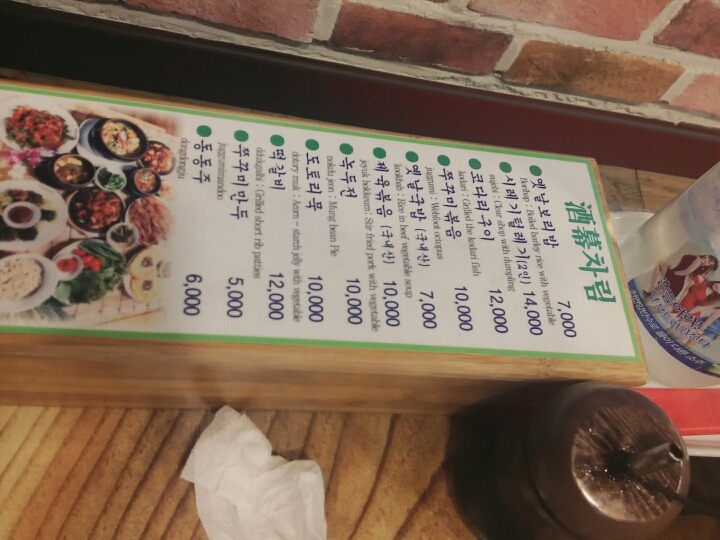 酒幕차림
옛날보리밥 7,000
Boribap : Boiled barley rice with vegetable
시래기털레기(2인) 14,000
sujebi : Clear shop with dumpling
코다리구이 12,000
kodari : Grilled the kodari fish
쭈꾸미볶음 10,000
juggumi : Webfoot octopus
옛날국밥 (국내산) 7,000
kookbab : Rice in beef vegetable soup
제육볶음 (국내산) 10,000
jeyuk bokkeum : Stir fried pork with vegetable
녹두전 10,000
nokdu jeon : Mung bean Pie
도토리묵 10,000
dotory muk : Acorn - starch jelly with vegetable
떡갈비 12,000
ddukgalbi : Grilled short rib patties
쭈꾸미만두 5,000
juggumimandoo
동동주 6,000
dongdongju